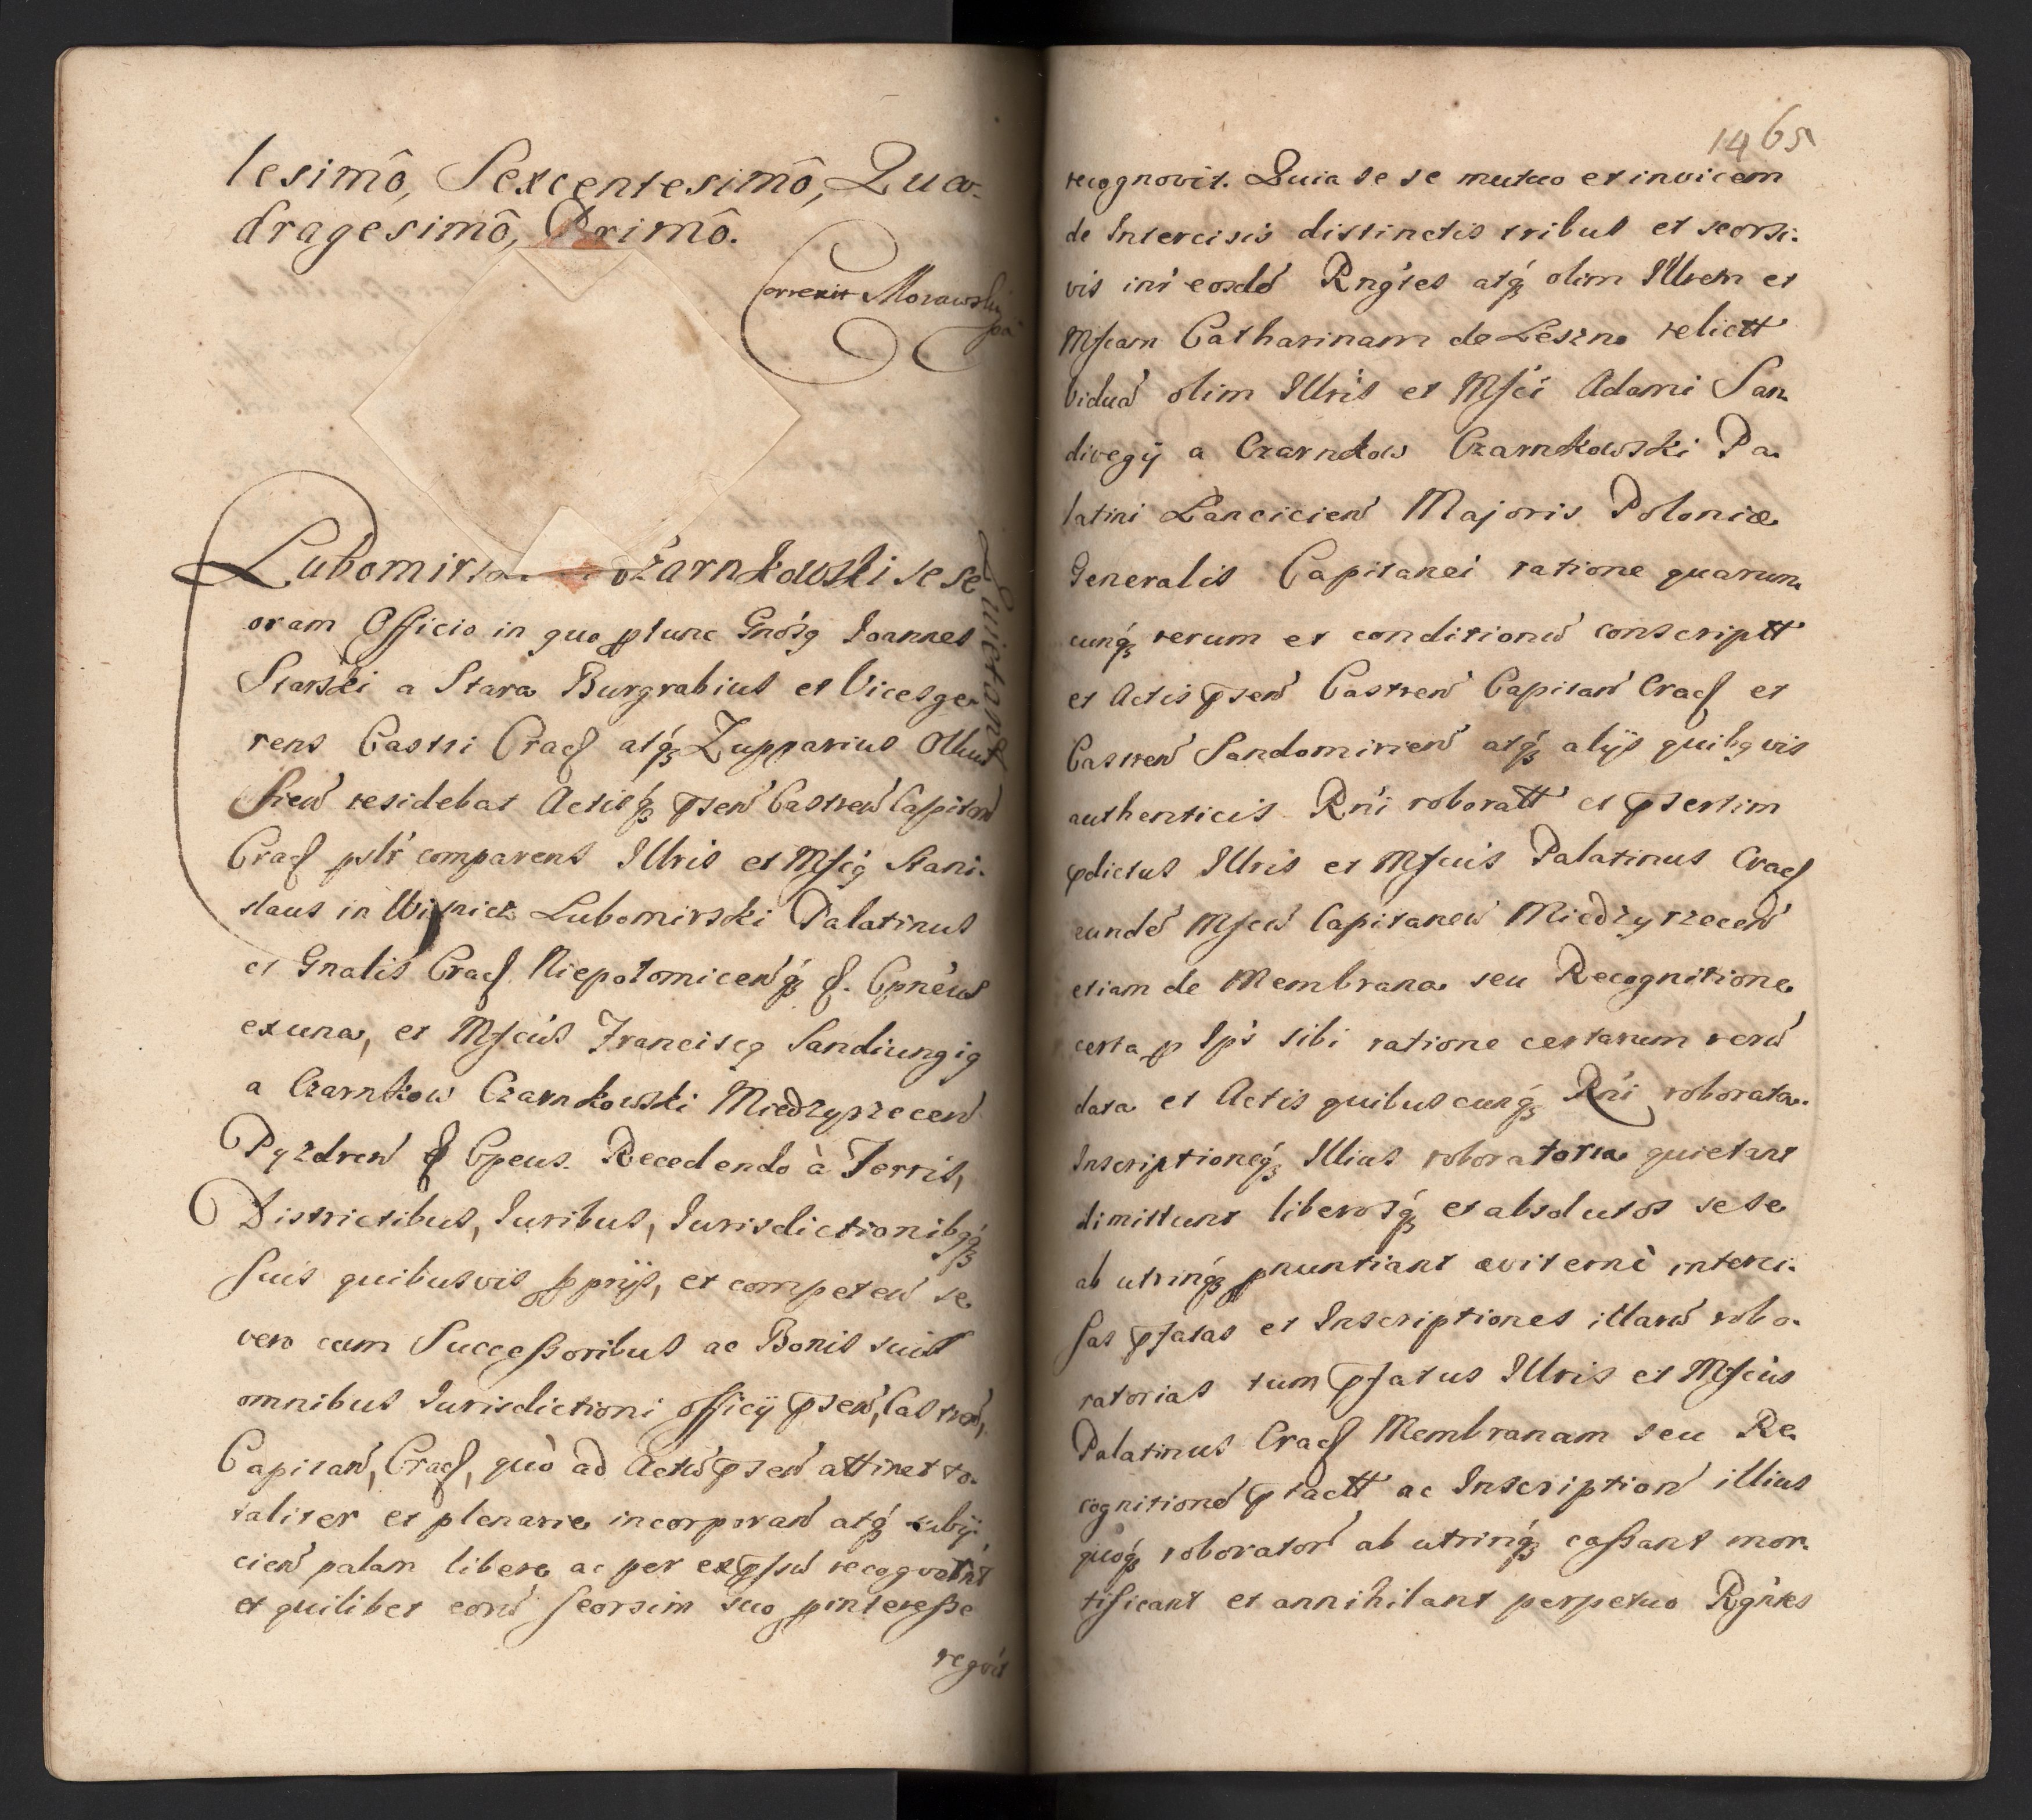 lesimô, Sexcentesimô, Qua-
dragesimô, Primô.
Correxit Morawski
Lubomirs Czarnkowski se se
Quietant
oram Officio in quo ptunc Gnósq Joannes
Starski a Stara Burgrabius et Vicesge-
rens Castri Cracf atq́ Zupparius Olkus
sień residebat Actisq́ pseń Castreń Capitań
Cracf pslr comparens Illris et Mfcq Stani-
slaus in Wisnicz Lubomirski Palatinus
et Gnalis Cracf Niepołomiceńq́ f. Cpnéus
ex una, et Mfcus Franciscq Sandiungiq
a Czarnkow Czarnkowski Miedzyrzeceń
Pyzdreń f Cpeus. Recedendo à Terris,
Districtibus, Iuribus, Iurisdictionibqq́
suis quibusvis pprijs, et competeń se
vero cum Successoribus ac Bonis suis
omnibus Iurisdictioni officij pseń, Castreń,
Capitań, Cracf, quò ad Actú pseń attinet to-
taliter et plenarie incorporań atq́ subij-
cień palam libere ac per expssú recogvernt
et quilibet eorú seorsim suo pinteresse
regvit
1465
recognovit. Quia se se mutuo et invicem
de Intercisis distinctis tribus et seorsi-
vis int eosdé Rngtes atq́ olim Illrem et
Mfcam Catharinam de Leszno relictt
viduá olim Illris et Mfci Adami San-
divogij a Czarnkow Czarnkowski Pa-
latini Lancicień Majoris Poloniæ
Generalis Capitanei ratione quarum-
cunq́ rerum et conditionú conscriptt
et Actis pseń Castreń Capitań Cracf et
Castreń Sandomirień atq́ alijs quibqvis
authenticis Rni roboratt et psertim
pdictus Illris et Mfcus Palatinus Cracf
eundé Mfcú Capitaneú Miedzyrzeceń
etiam de Membrana seu Recognitione
certa p Ips sibi ratione certarum rerú
data et Actis quibuscunq́ Rni roborata
Inscriptioneq́ Illius roboratoria quietant
dimittunt liberosq́ et absolutos se se
ab utrinq́ pnuntiant æviternè interci-
sas pfatas et Inscriptiones illarú robo-
ratorias tum pfatus Illris et Mfcus
Palatinus Cracf Membranam seu Re-
cognitioné ptactt ac Inscription illius
quoq́ roborator ab utrinq́ cassant mor-
tificant et annihilant perpetuo Rgntes